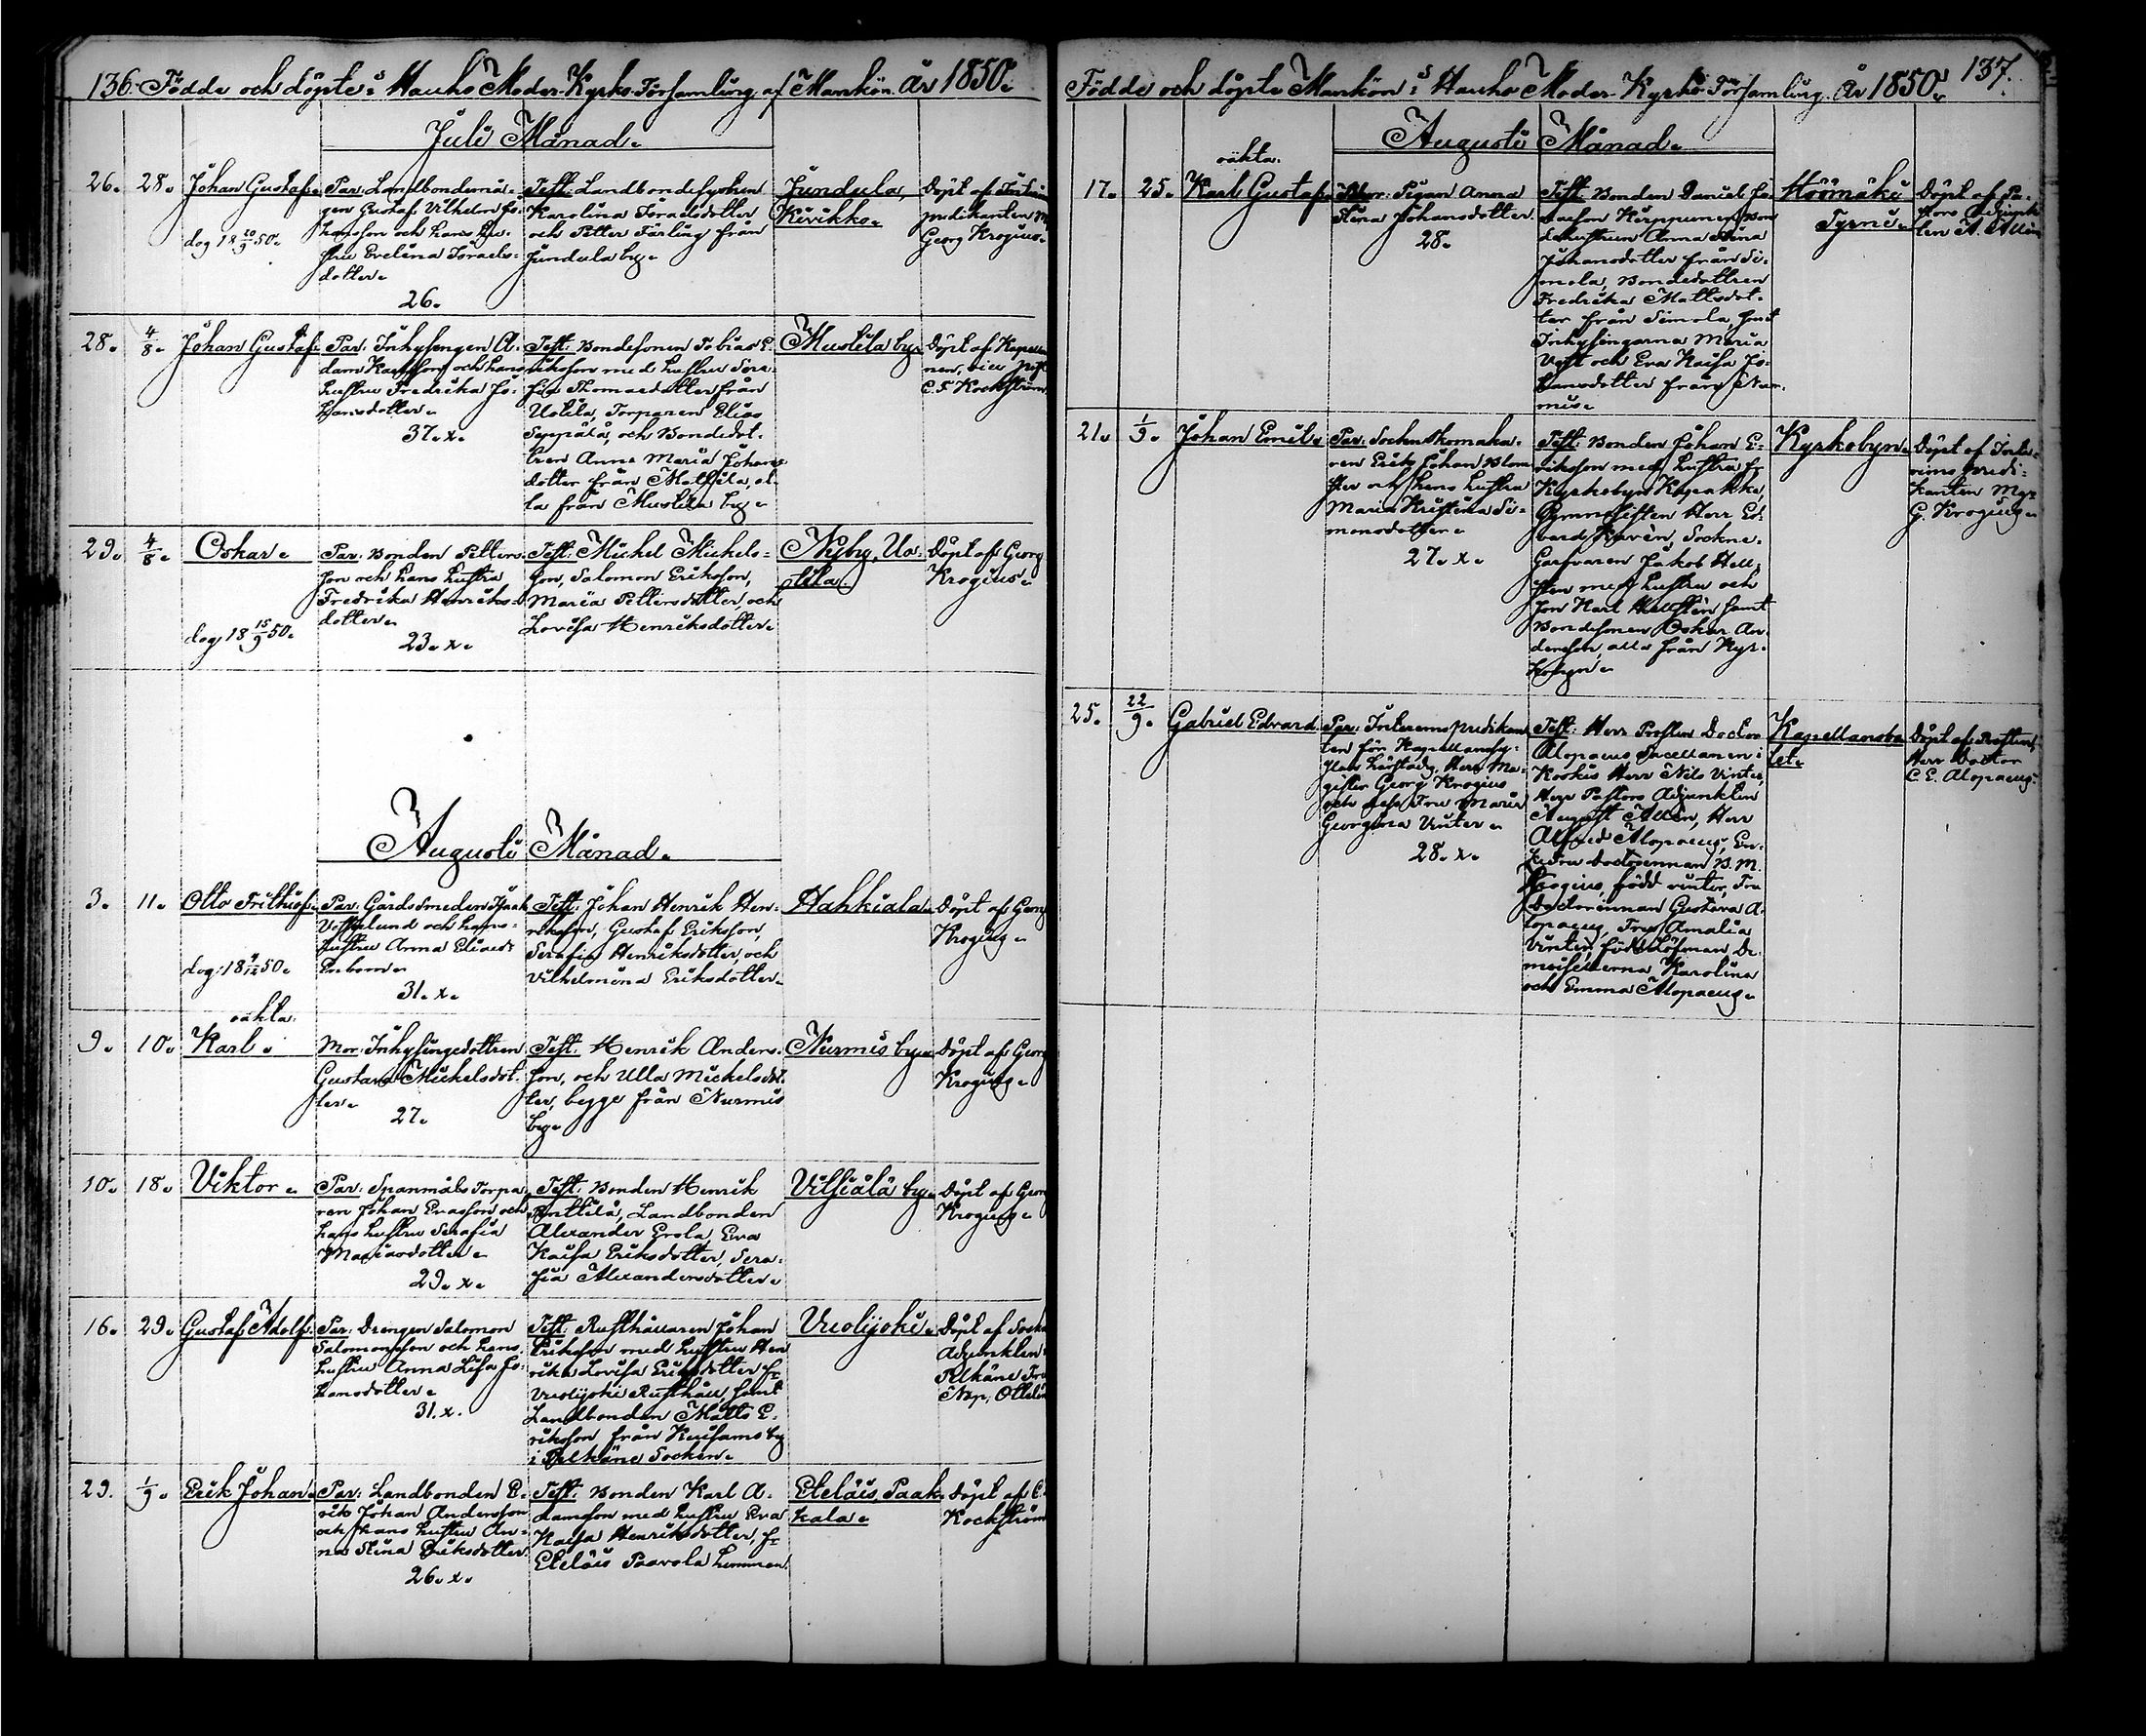 136. Födde och döpte i Hauho Moder-Kyrko-Församling af Mankön. År 1850.
Juli Månad.
26. 28. Johan Gustaf.
dog 18 20/9 50.
Par: Landbondemå-
gen Gustaf Vilhelm Jo-
hansson och hans hu-
stru Evelina Israels-
dotter.
26.
Test: Landbondehustrun
Karolina Israelsdotter
och Petter Färling från
Jundula by.
Jundula,
Kivikko.
Döpt af
predikanten
Georg Krogius.
28. 4/8. Johan Gustaf.
Par: Inhysingen A-
dam Karlsson och hans
hustru Fredrika Jo-
hansdotter.
37. x.
Test: Bondesonen Tobias E-
riksson med hustru Sera-
fia Thomasdotter från
Uotila, Torparen Elias
Seppälä, och Bondedot-
tren Anna Maria Johans-
dotter från Mattila, al-
la från Mustila by.
Mustila by.
Döpt af
C. F. Kockström
29. 4/8. Oskar.
dog 18 15/9 50.
Par: Bonden Petters-
son och hans hustru
Fredrika Henriks-
dotter.
23. x.
Test: Michel Michels-
son, Salomon Eriksson,
Maria Pettersdotter, och
Lovisa Henriksdotter.
Nyby, Uo-
tila.
Döpt af Georg
Krogius.
Augusti Månad.
3. 11. Otto Frithiof.
dog: 18 4/12 50.
Par: Gårdssmeden Isaak
och hans
hustru Anna Eliaed:
Enbom.
31. x.
Test: Johan Henrik Hen-
riksson, Gustaf Eriksson,
Serafia Henriksdotter, och
Vilhelmina Eriksdotter.
Hahkiala.
Döpt af Georg
Krogius.
9. 10. oäkta.
Karl.
Mor: Inhysingedottren
Gustava Michelsdot-
ter.
27.
Test: Henrik Anders-
son, och Ulla Michelsdot-
ter, begge från Nurmis
by.
Nurmis by.
Döpt af Georg
Krogius.
10. 18. Viktor.
Par: Spanmåls Torpa-
ren Johan Erasson och
hans hustru Serafia
Mariasdotter.
29. x.
Test: Bonden Henrik
Anttila, Landbonden
Alexander Erola, Eva
Kaisa Eriksdotter, Sera-
fia Alexandersdotter.
Vitsiälä by.
Döpt af Georg
Krogius.
16. 29. Gustaf Adolf.
Par: Drengen Salomon
Salomonsson och hans
hustru Anna Lisa Jo-
hansdotter.
31. x.
Test: Rusthållaren Johan
Eriksson med hustru Hen
rika Lovisa Eriksdotter fr
Vuolijoki Rusthåll, samt
Landbonden Matts E-
riksson från Kuisams by
i Pelkäne Socken.
Vuolijoki.
Döpt af Socke
Adjunkten
Pelkäne
Nap. Ottelin
29. 1/9. Erik Johan.
Par: Landbonden E-
rik Johan Andersson
och hans hustru An-
na Stina Eriksdotter.
26. x.
Test: Bonden Karl A-
damsson med hustru Eva
Kaisa Henriksdotter, fr
Eteläis Paavola hemman.
Eteläis, Paak-
kala.
Döpt af C.
Kockström
Födde och döpte Mankön i Hauho Moder-Kyrko-Församling. År 1850. 137.
Augusti Månad.
17. 25. oäkta.
Karl Gustaf.
Mor: Pigan Anna
Stina Johansdotter.
28.
Test: Bonden Daniel
Kirppumen, Bon
dehustrun Anna Stina
Johansdotter från Si-
mola, Bondedottren
Fredrika Mattsdot-
ter från Simola, samt
Inhysingarna Maria
och Eva Kaisa Jo-
hansdotter från Nur-
mis.
Höömäki
Tyrni.
Döpt af Pa-
stors Adjunk-
ten A. Allén
21. 1/9. Johan Emil.
Par: Socken Skomaka-
ren Erik Johan Blom
ster och hans hustru
Maria Kristina Si-
monsdotter.
27. x.
Test: Bonden Johan E-
riksson med hustru fr
Kyrkobyn Kapakka,
Gymnasisten Herr Ed-
vard Kavén, Sockne-
Garfvaren Jakob Hell-
sten med hustru och
son Karl Hellstén samt
Bondesonen Oskar An-
dersson, alla från Kyr-
kobyn.
Kyrkobyn.
Döpt af Inte-
rims predi-
kanten Mgr
G. Krogius.
25. 22/9. Gabriel Edvard.
Par: Interims predikan-
ten för Kapellanssy-
slan härstädes, Herr Ma-
gister Georg Krogius
och dess Fru Maria
Georgina Vinter.
28. x.
Test: Herr Prosten Doctor
Alopaeus Sacellanen i
Koskis Herr Nils Vinter,
Herr Pastors Adjunkten
August Allén, Herr
Alfred Alopaeus, En-
kefru Doctorinnan B. M.
Krogius, född vinter, Fru
Doctorinnan Gustava A-
lopaeus, Fru Amalia
Vinter, född Löfman, De-
moisellerna Karolina
och Emma Alopaeus.
Kapellansbo-
let.
Döpt af Prosten,
Herr Doctor
C. E. Alopaeus.